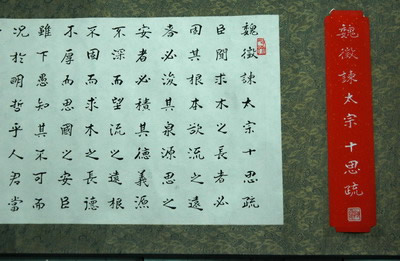 魏徵諫太宗十思疏
魏徵諫太宗十思疏
臣聞求木之長者必
固其根本欲流之遠
者必浚其泉源思之
安者必積其德義源
不深而望流之遠根
不固而求木之長德
不厚而思國之安臣
雖下愚知其不可而
況於明哲乎人君當